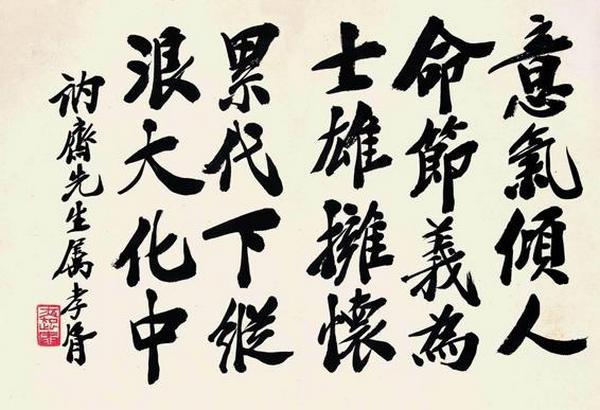 意氣傾人
命節義為
士雄擁懷
累代下縱
浪大化中
訥齋先生属孝胥